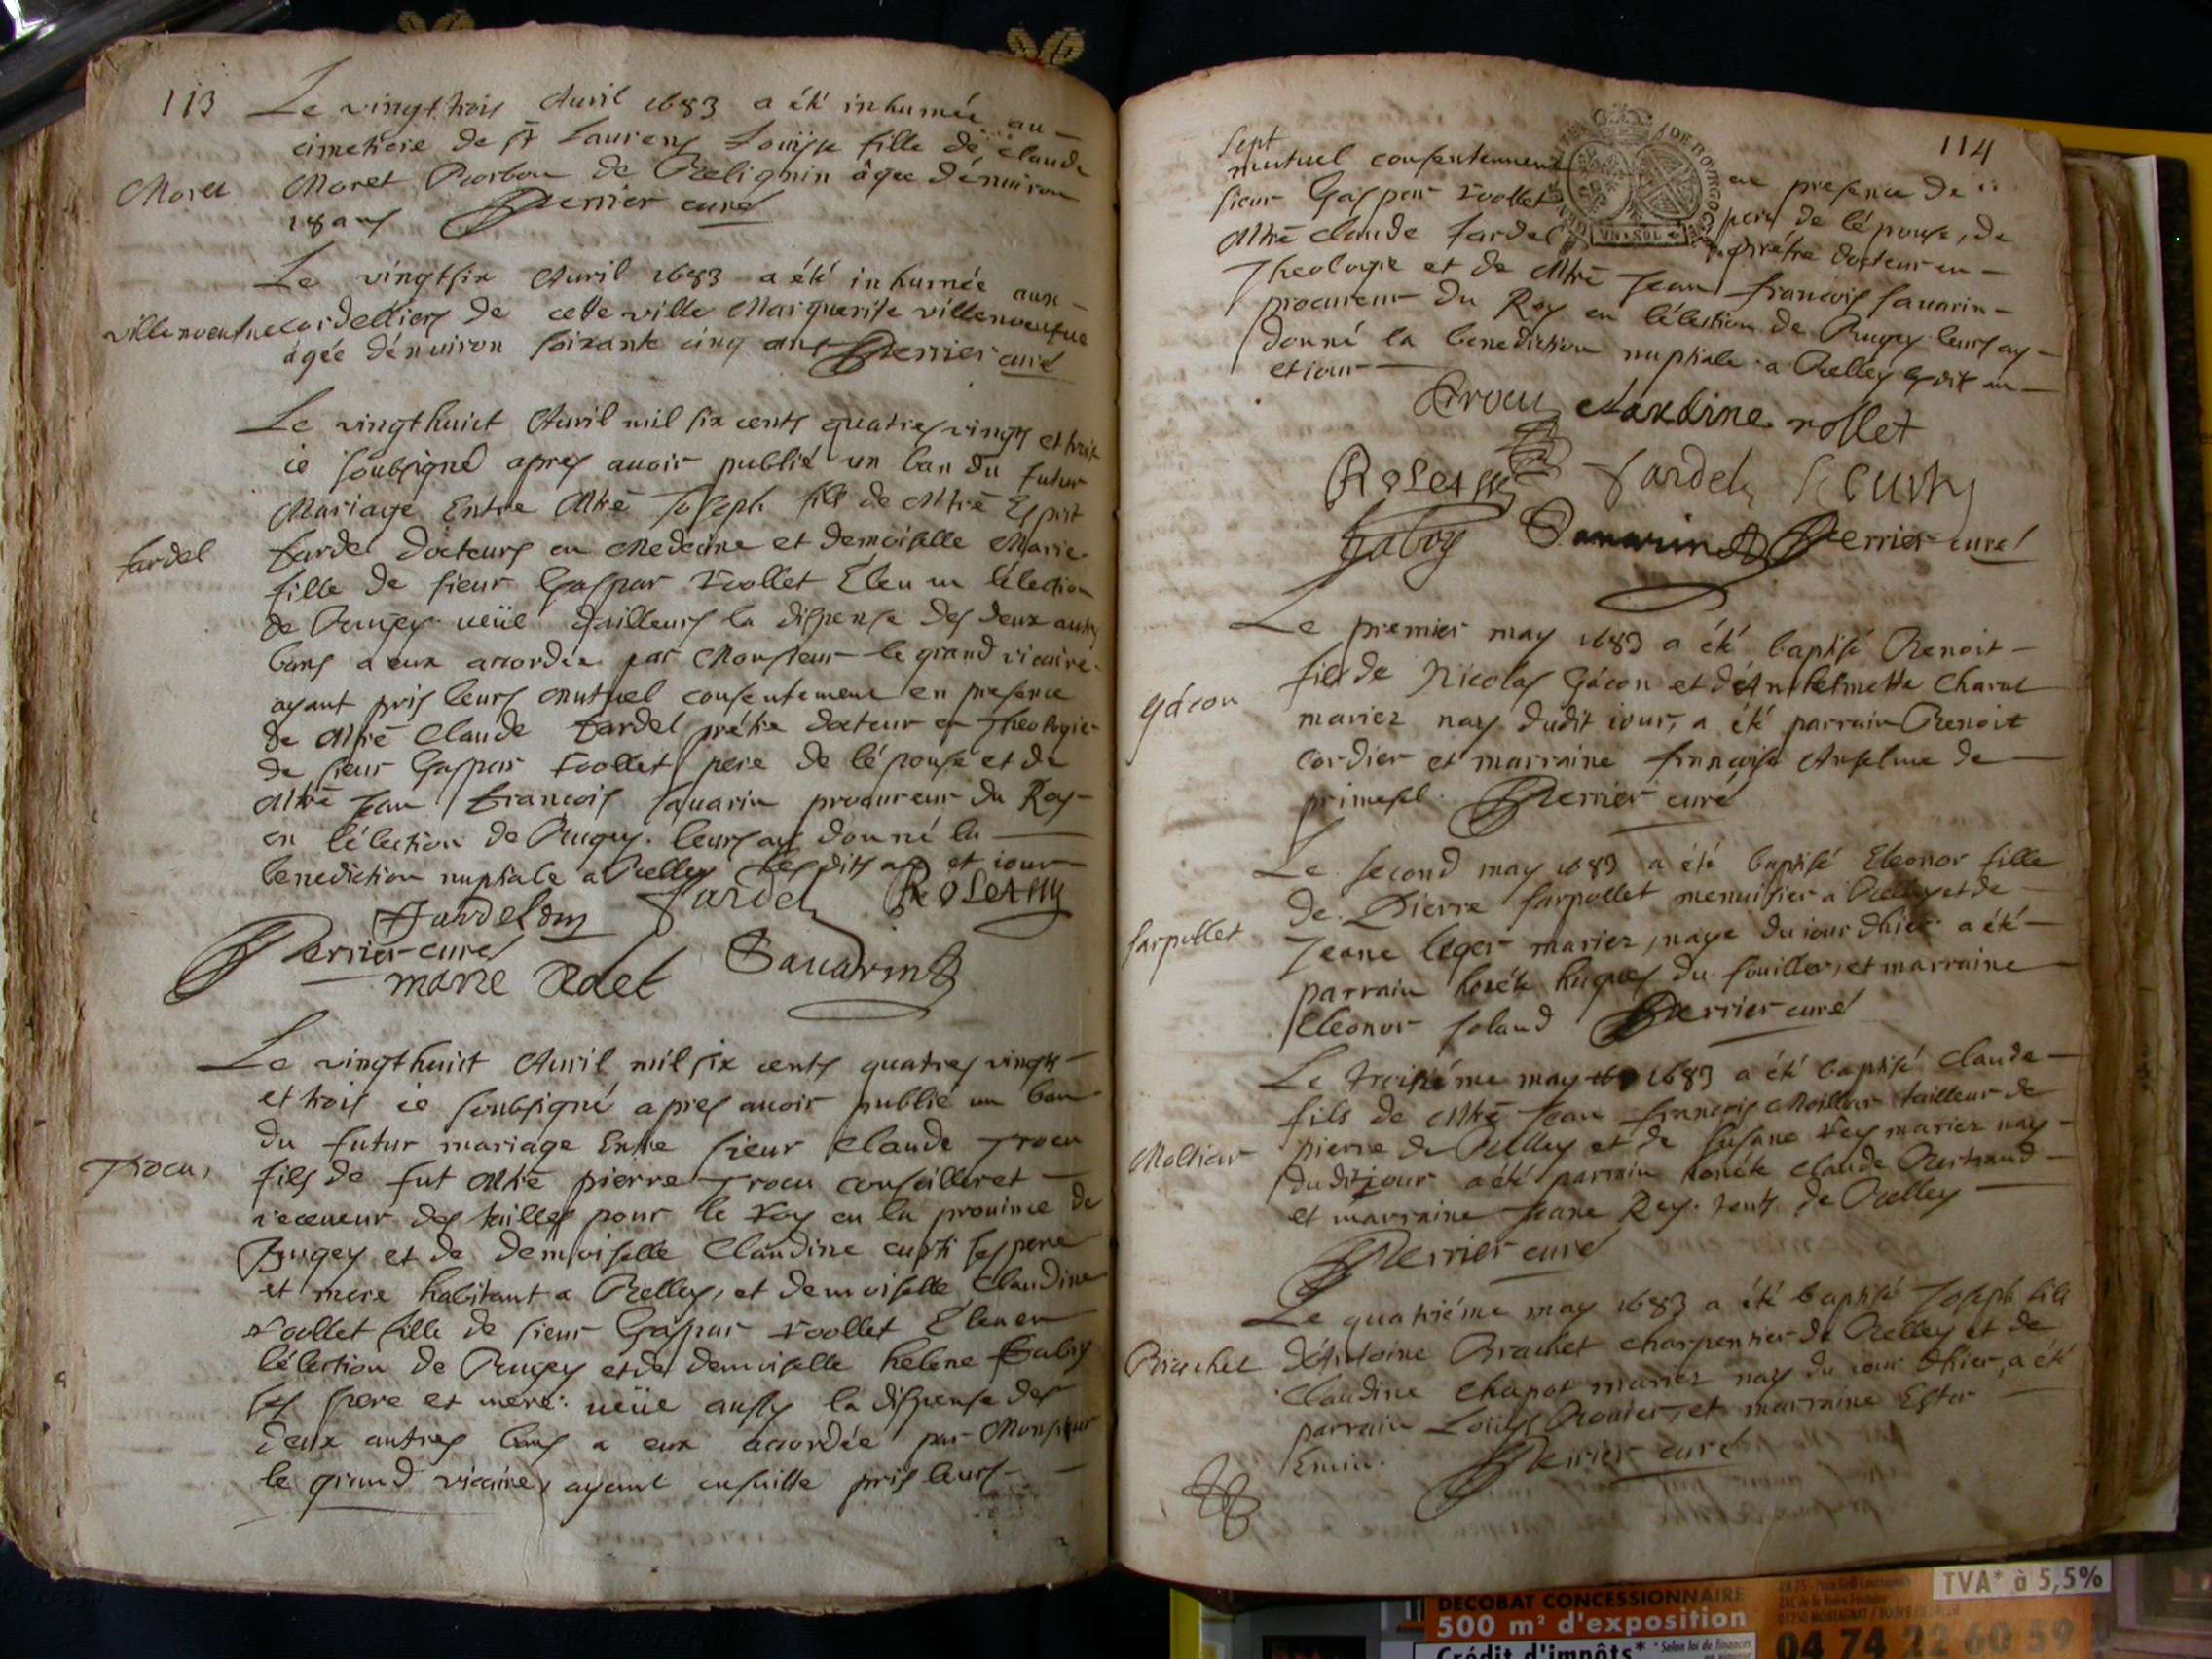 113
Le vingt trois Auril 1683 a été inhumée au
cimetiere de st Laurens Louïse fille de claude
Moret
Moret Barbou de Belignin âgée dénuiron
18 ans Perrier curé
Le vingtsix Auril 1683 a été inhumée aux
villenveufue
cordelliers de cette ville Marguerite villenveufue
âgée dénuiron soixante cinq ans Perrier curé
Le vingthuict Auril mil six cents quatres vingts et trois
ie soubsigné apres auoir publié un ban du futur
Mariage Entre Mtre Joseph fils de Mtre Esprit
fardel
fardel docteurs en Medecine et demoiselle Marie
fille de sieur Gaspar roollet Éleu en l'élection
de Bugey. ueüe dailleurs la dispense des deux autres
bans a eux accordée par Monsieur le grand vicaire
ayant pris leurs mutuel consentement en presence
de Mtre Claude fardel prétre docteur en Theologie
de sieur Gaspar roollet pere de lépouse et de
Mtre Jean François sauarin procureur du Roy
en l'élection de Bugey. leurs ay donné la
benediction nuptiale a Belley lesdits an et iour
fardel dm fardel Roletty
Perrier curé
marie Rolet Sauarin
Le vingthuict Auril mil six cents quatres vingts
et trois ie soubsigné apres auoir publié un ban
du futur mariage Entre sieur Claude Trocu
Trocu
fils de fut Mtre pierre Trocu conseiller et
receueur des tailles pour le roy en la prouince de
Bugey et de demoiselle Claudine curti ses pere
et mere habitant a Belley, et demoiselle Claudine
roollet fille de sieur Gaspar roollet Éleu en
l'élection de Bugey et de demoiselle helene Gabry
ses pere et mere. ueüe aussy la dispense des
deux autres bans a eux accordée par Monsieur
le grand vicaire, ayant ensuitte pris leurs
114
sept
mutuel consentement en presence de
sieur Gaspar roollet pere de lépouse, de
Mtre claude fardel prétre docteur en
Theologie et de Mtre Jean françois sauarin
procureur du Roy en l'élection de Bugey leurs ay
donné la benediction nuptiale a Belley lesdit an
et iour
Trocu claudine rollet
Roletty fardel
Gabry Sauarin Perrier curé
VN SOL
Le premier may 1683 a été baptisé Benoit
Gácon
fils de Nicolas Gácon et d'Anthelmette Charut
mariez nay dudit iour, a été parrain Benoit
Cordier et marraine françoise Anselme de
primesel. Perrier curé
Le second may 1683 a été baptisé Eleonor fille
sarpollet
de Pierre sarpollet menuisier a Belley et de
Jeane leger mariez, naye du iour dhier a été
parrain honéte hugues du fouiller, et marraine
Eleonor soland Perrier curé
Le troisiéme may 1683 a été baptisé Claude
fils de Mtre Jean françois Mollier tailleur de
Mollier
pierre de Belley et de susane rey mariez nay
dudit iour a été parrain honéte claude Bertrand
et marraine Jeane Rey. touts de Belley
Perrier curé
Le quatriéme may 1683 a été baptisé Joseph fils
Brachet
d'Antoine Brachet charpentier de Belley et de
Claudine Chapot mariez nay du iour dhier, a été
parrain Loüys Bouier, et marraine Ester
Perrier curé
DECOBAT CONCESSIONNAIRE
500 m² d'exposition
Crédit d'impôts*
* Selon loi de finances
TVA* à 5,5%
04 74 22 60 59